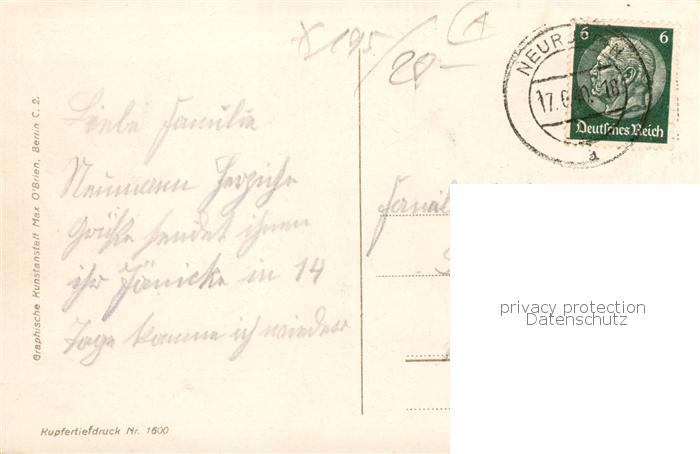 x 195/
28-
A
6 6
Deutsches Reich
17.6.40. 18
a
Liebe Familie
Neumann Herzliche
Grüße sendet ihnen
ihr Jänicke in 14
Tage komme ich wieder
Famil
Graphische Kunstanstalt Max O'Brien, Berlin C. 2.
Kupfertiefdruck Nr. 1600
privacy protection
Datenschutz